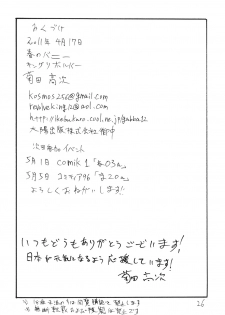 おくづけ
2011年 4月17日
春のバニー
キングリボルバー
菊田高次
kosmos256@gmail.com
revolveking12@aol.com
太陽出版株式会社御中
次回参加イベント
5月1日 comik1 「を03a」
5月5日 コミティア96 「を20a」
よろしくおねがいします!
いつもどうもありがとうございます!
日本が元気になるよう応援しています!
26